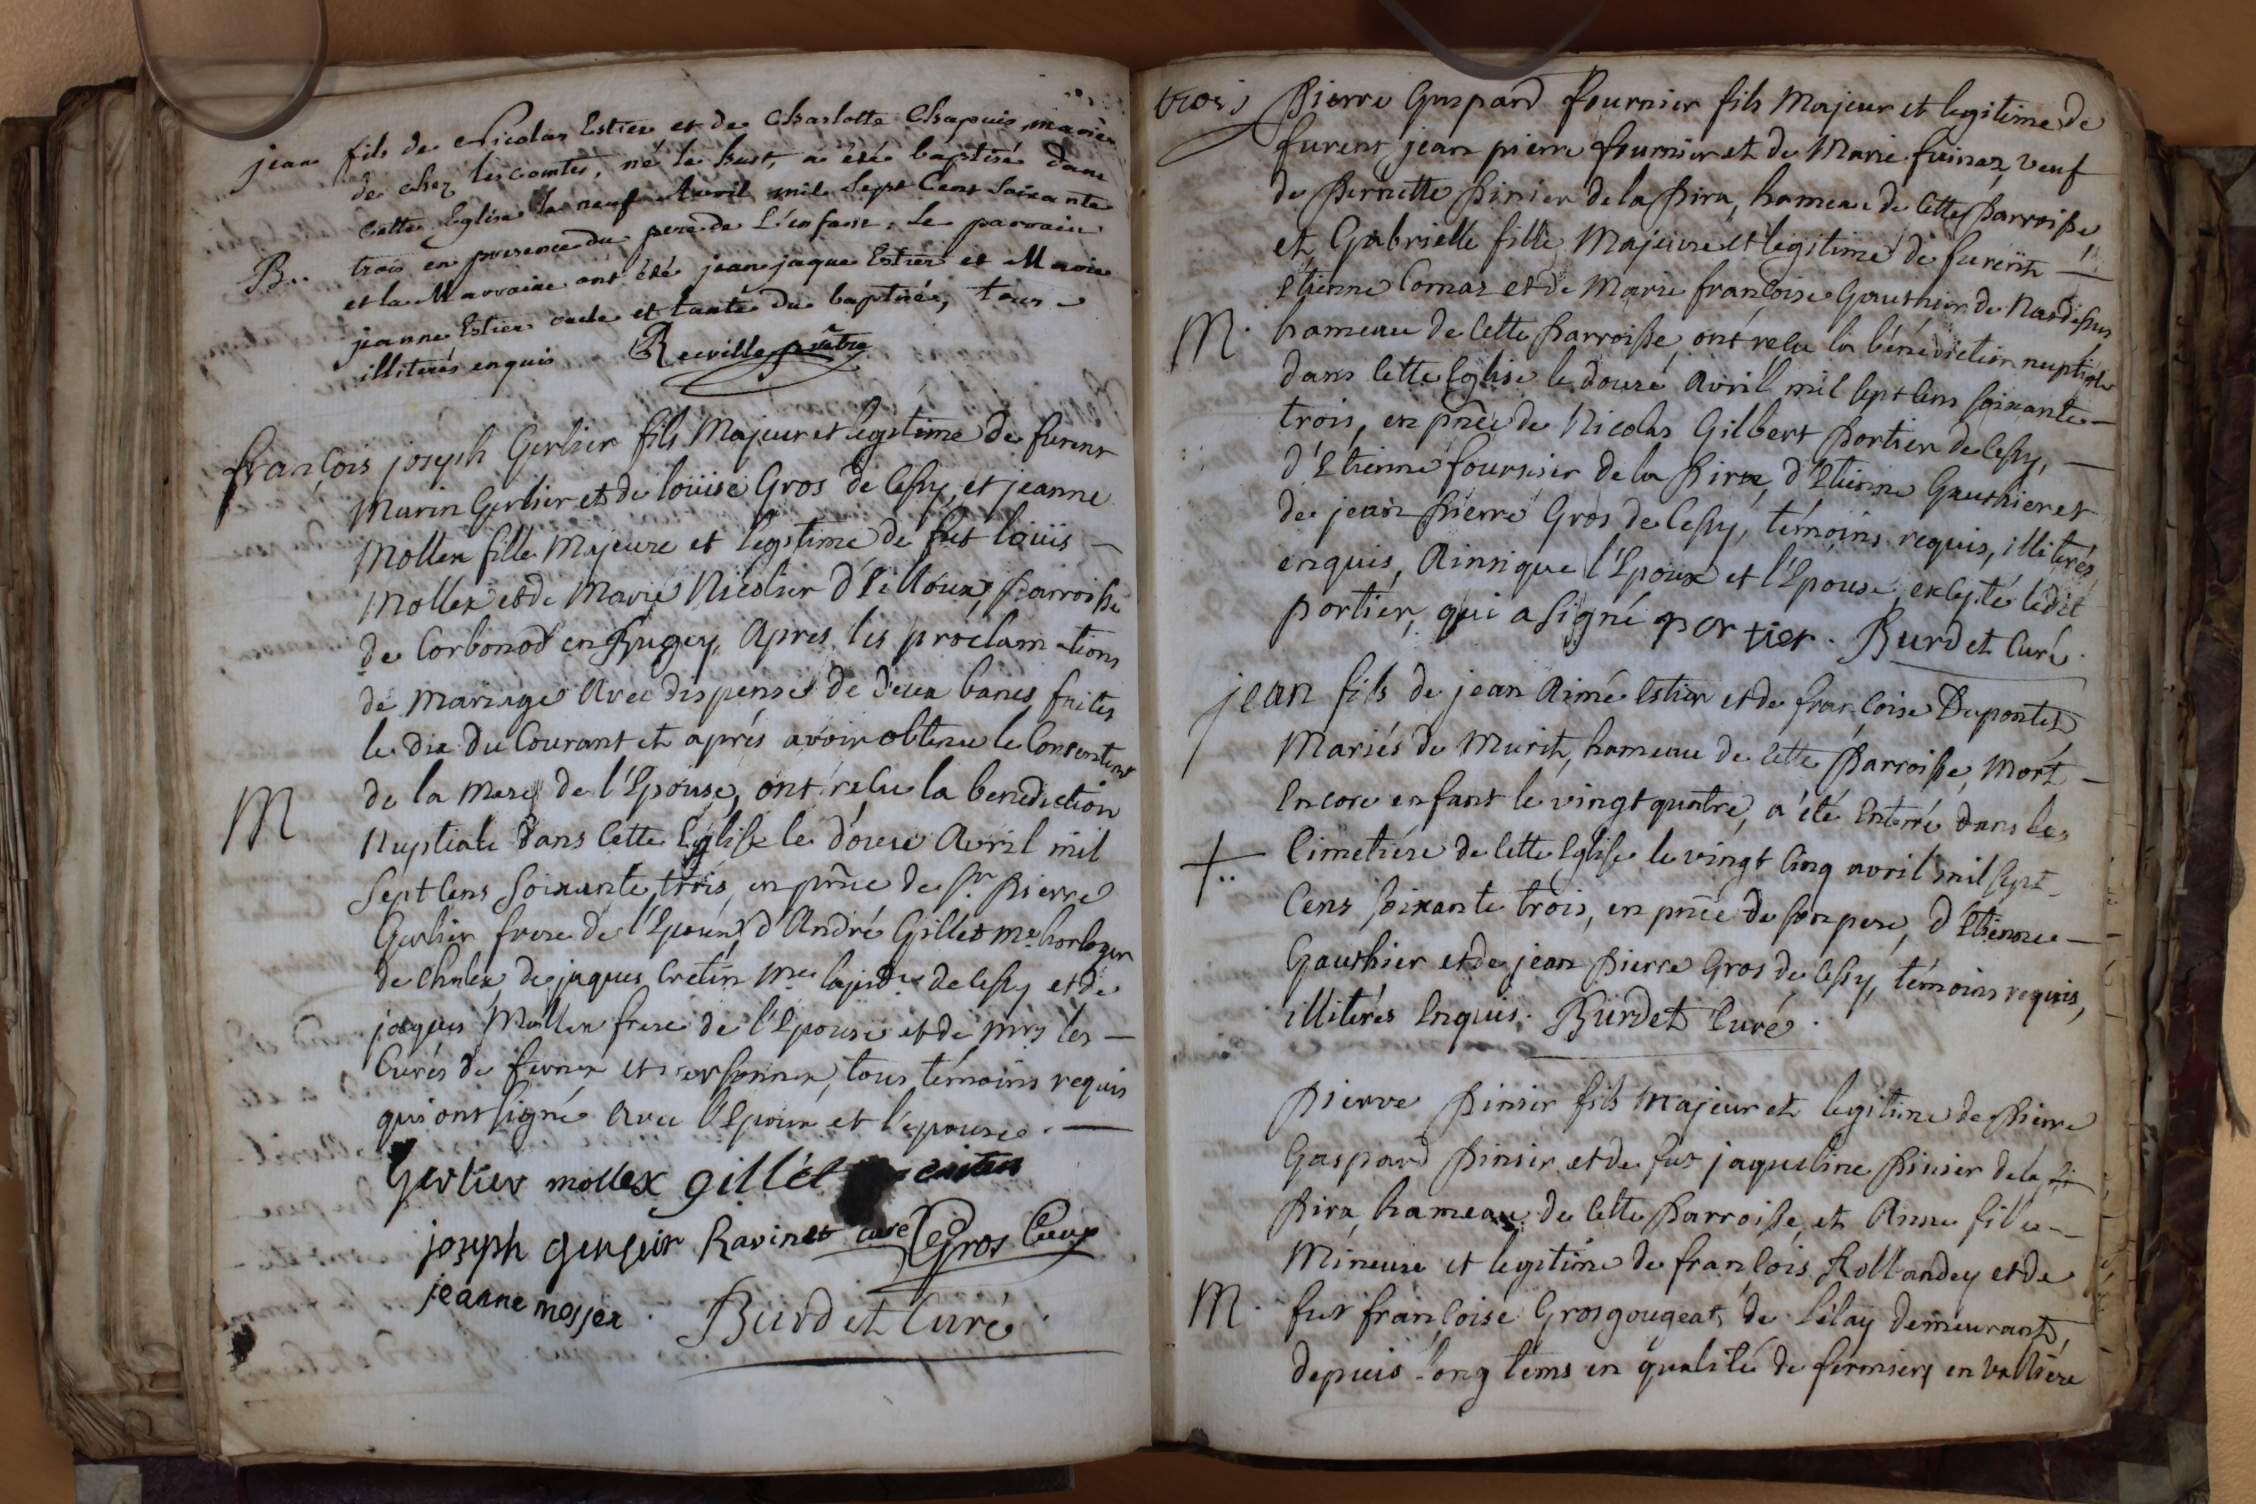 jean fils de Nicolas Estier et de Charlotte Chapuis, mariés
de chez les comtes, né le huit, a été baptisé dans
cette Eglise le neuf Avril mil Sept Cent Soixante
B.. trois en presence du pere de L'enfant. Le parrain
et la Marraine ont été jean jaque Estier et Marie
jeanne Estier oncle et tante du baptisé, tous
illiterés enquis Reville prêtre
françois joseph Gerlier fils Majeur et legitime de furent
Marin Gerlier et de loüise Gros de Cessy, et jeanne
Mollex fille Majeure et legitime de fut loüis —
Mollex et de Marie Nicolier d' parroisse
de Corbonod en Bugey, Apres les proclamations
de mariage avec dispense de deux bancs faites
le dix du Courant et aprés avoir obtenu le Consentemt
de la mere de l'Epouse, ont reçu la benediction
M Nuptiale dans cette Eglise le douze Avril mil
Sept cens Soixante trois, en pñce de Sr. Pierre
Gerlier frere de l'Epoux, d'André Gillet me. horloger
de Chalex, de jaques Cretin me. lapidre de Cessy et de
jaques Mollex frere de l'Epouse et de mrs les —
Curés de fernex et versonnex, tous témoins requis
qui ont signé avec l'Epoux et l'epouse. —
Gerlier mollex gillet
joseph gerleir Ravinet curé Gros Curé
jeanne mollex. Burdet Curé.
trois Pierre Gaspard fournier fils Majeur et legitime de
furent jean pierre fournier et de Marie fuinaz, veuf
de Pernette Pinier de la Pira, hameau de cette Parroisse,
et Gabrielle fille Majeure et legitime de furent —
Etienne Comaz et de Marie françoise Gauthier de
M. hameau de cette Parroisse, ont reçu la bénédiction nuptiale
dans cette Eglise le douze Avril mil sept cens soixante —
trois, en pñce de Nicolas Gilbert Portier de Cessy, —
d'Etienne fournier de la Pira, d'Etienne Gauthier et
de jean Pierre Gros de Cessy, témoins requis, illiterés
enquis, Ainsi que l'Epoux et l'Epouse, excepté ledit
portier, qui a signé portier. Burdet Curé.
jean fils de jean Aimé Estier et de françoise Dupontet
Mariés de Murit, hameau de cette Parroisse, mort —
encore enfant le vingt quatre, a été enterré dans le
+.. Cimetiére de cette Eglise le vingt cinq avril mil sept
Cens soixante trois, en pñce de son pere, d'Etienne —
Gauthier et de jean Pierre Gros de Cessy, témoins requis,
illiterés enquis. Burdet Curé.
Pierre Pinier fils majeur et legitime de Pierre
Gaspard Pinier et de fut jaqueline Pinier de la
Pira, hameau de cette Parroisse, et Anne fille —
Mineure et legitime de françois Rollandey et de
M. fut françoise Grosgougeat, de Lélay demeurant,
depuis long tems en qualité de fermiers en